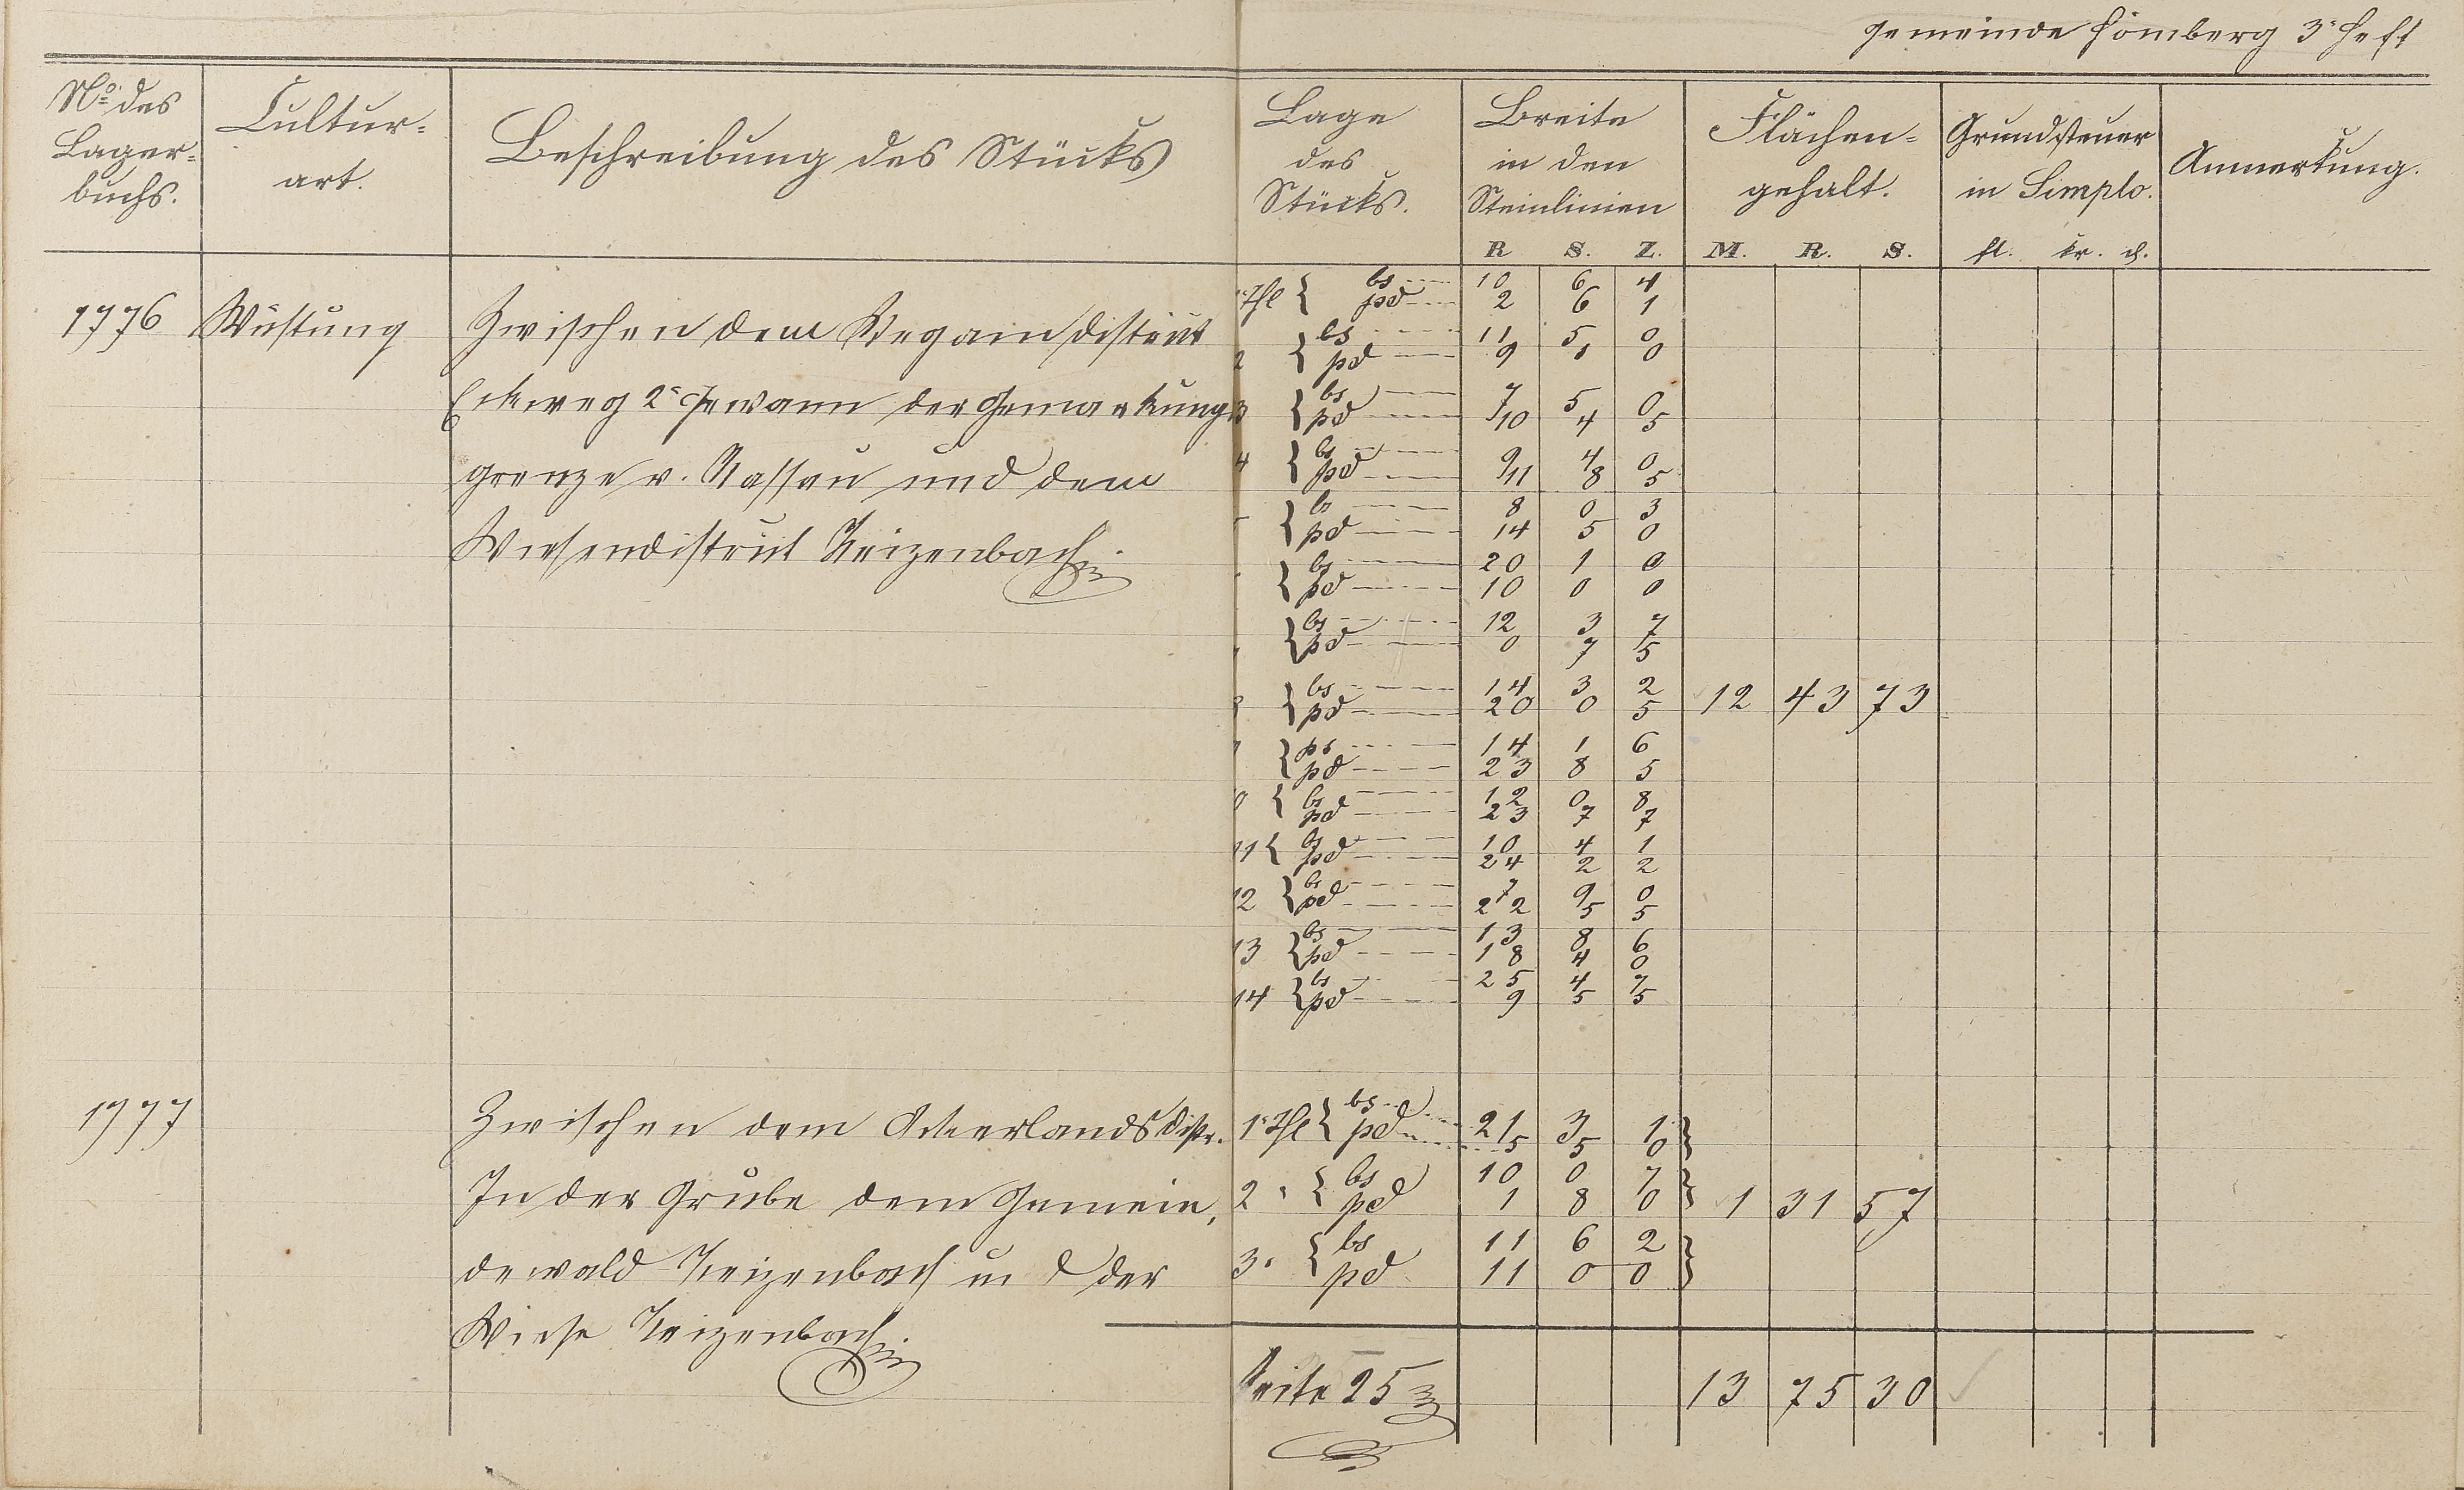 Gemeinde Hömberg 3s Heft
No. des Lager=buchs.
Cultur=art.
Beschreibung des Stücks
Lage des Stücks.
Breite in den Steinlinien
Flächen=gehalt.
Grundsteuer in Simplo.
Anmerkung.
R S. Z. M. R. S. fl. kr. d.
1776 Wüstung
Zwischen dem District
Eckweg 2e Gewann der Gemarkungs
grenze v. Nassau und dem
Wiesendistrict Keizenbach.
1s Thl { bs 10 6 4
pd 2 6 1
2 { bs 11 5 0
pd 9 1 0
3 { bs 7 5 0
pd 10 4 5
4 { bs 9 4 0
pd 11 8 5
{ bs 8 0 3
pd 14 5 0
{ bs 20 1 0
pd 10 0 0
{ bs 12 3 7
pd 0 7 5
8 { bs 14 3 2
pd 20 0 5
12 43 73
{ ps 14 1 6
pd 23 8 5
0 { bs 12 0 8
pd 23 7 7
11 { bs 10 4 1
pd 24 2 2
12 { bs 7 9 0
pd 22 5 5
13 { bs 13 8 6
pd 18 4 0
14 { bs 25 4 7
pd 9 5 5
1777
Zwischen dem Ackerlands distr.
In der Grube dem Gemein,
dewald Keizenbach u d der
Wiese Keizenbach.
1s Thl { bs 21 3 1 }
pd 5 5 0
2 " { bs 10 0 7 }
pd 1 8 0
1 31 57
3 " { bs 11 6 2 }
pd 11 0 0
Seite 25 13 75 30